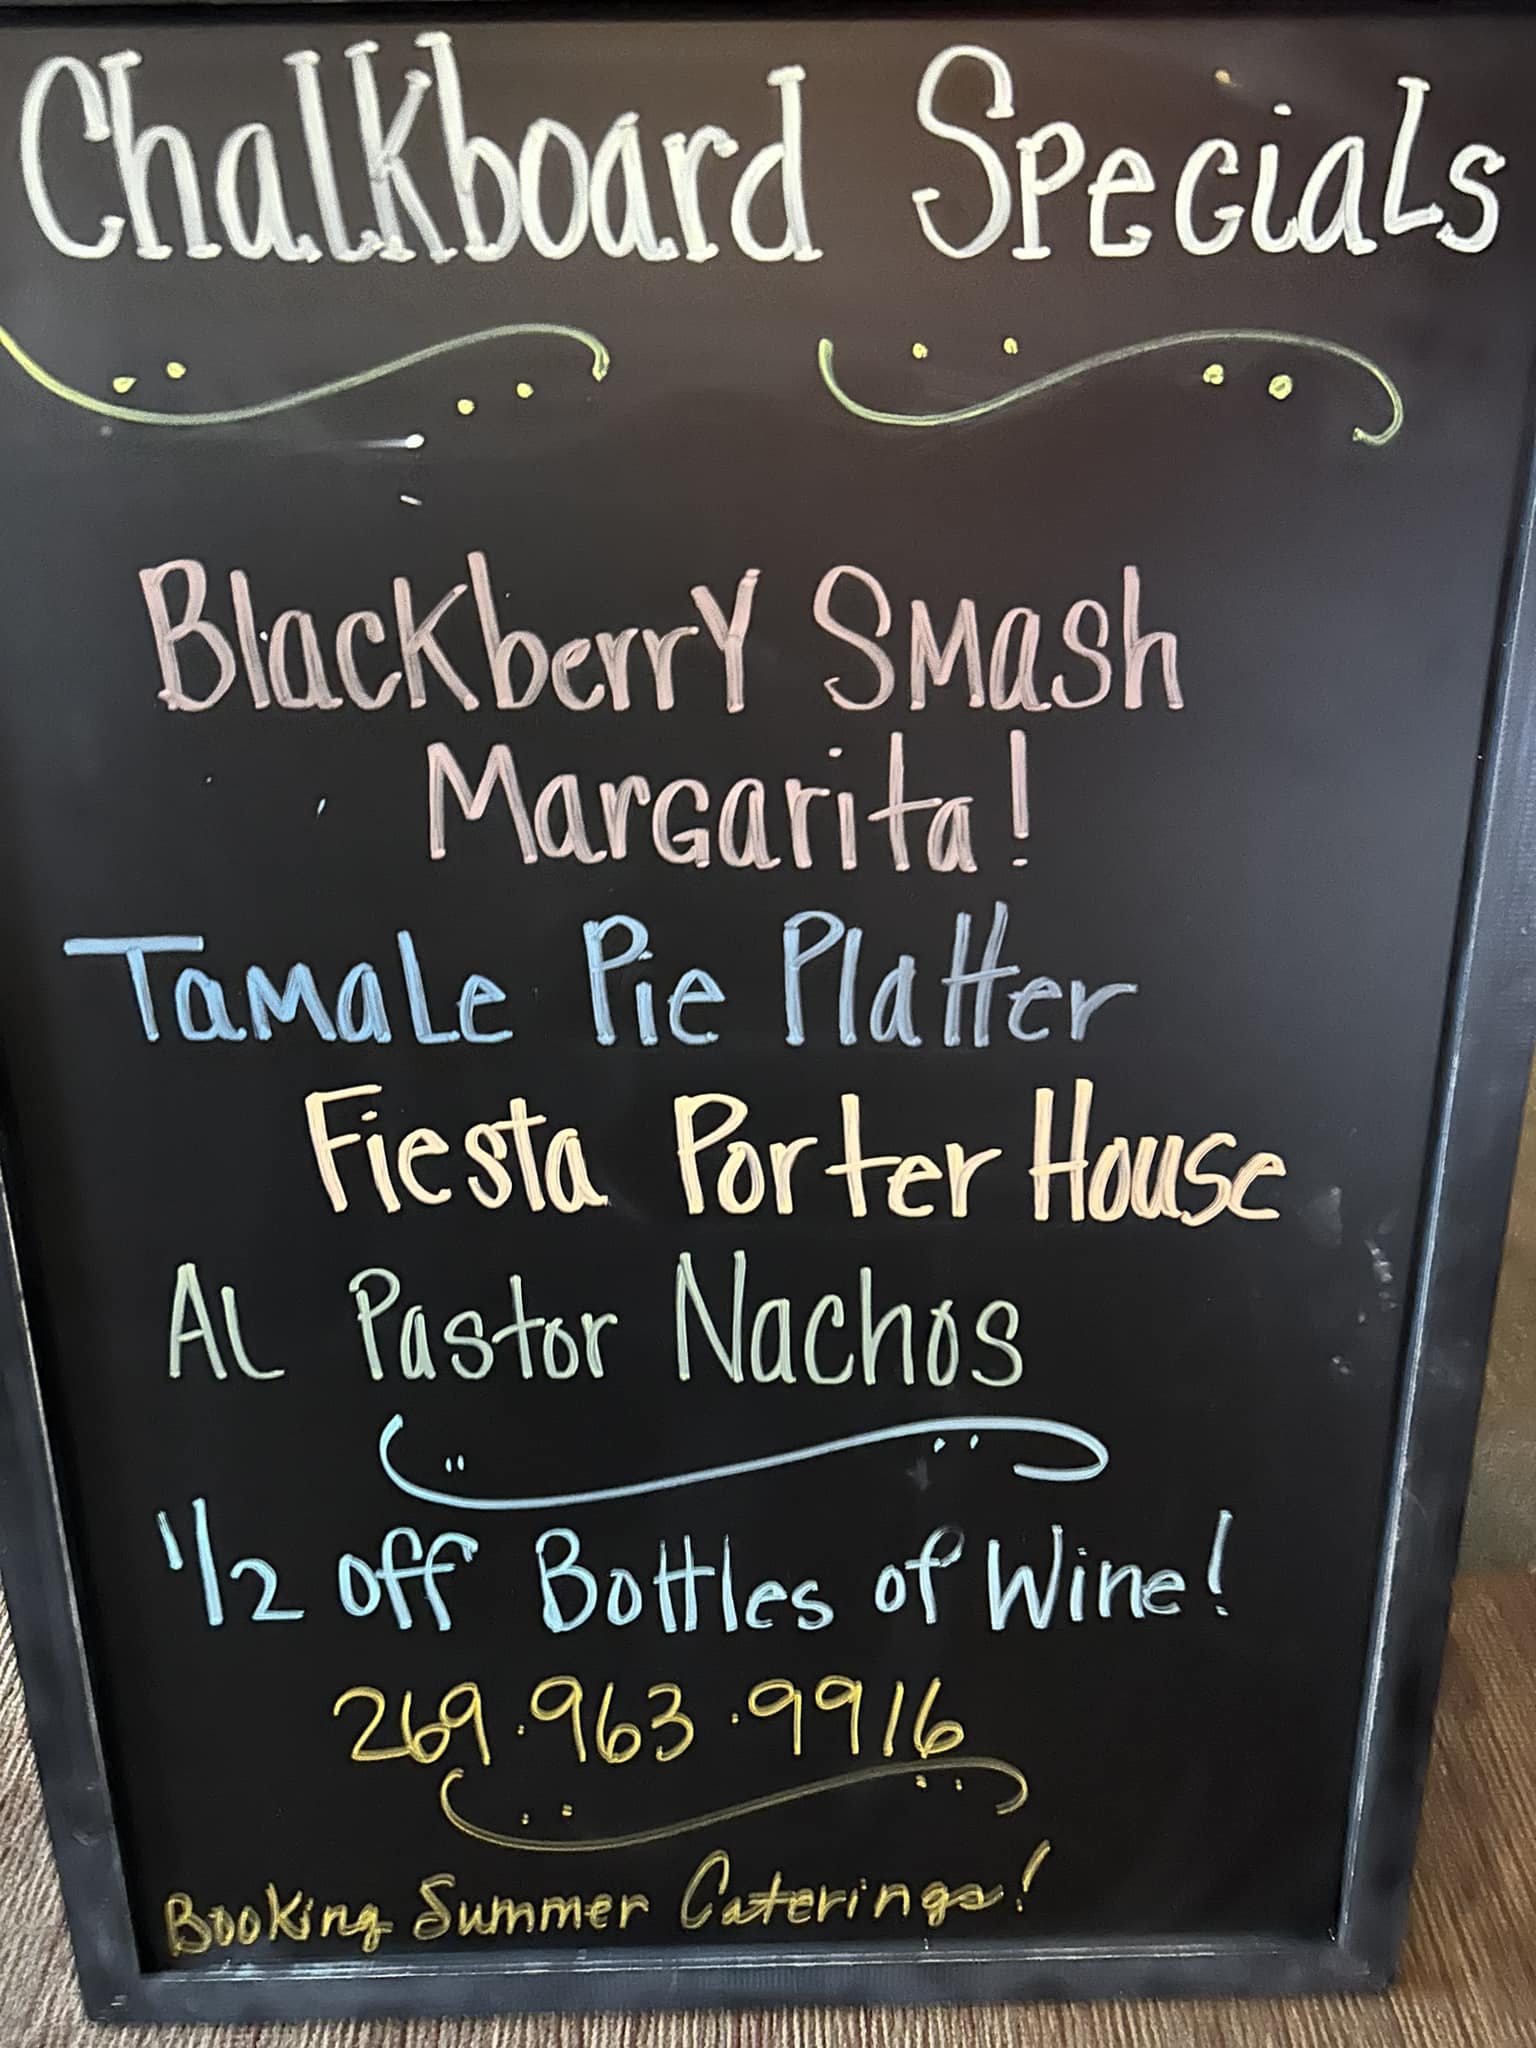 Chalkboard Specials
Blackberry Smash
Margarita!
Tamale Pie Platter
Fiesta Porter House
Al Pastor Nachos
1/2 off Bottles of Wine!
269.963.9916
Booking Summer Caterings!